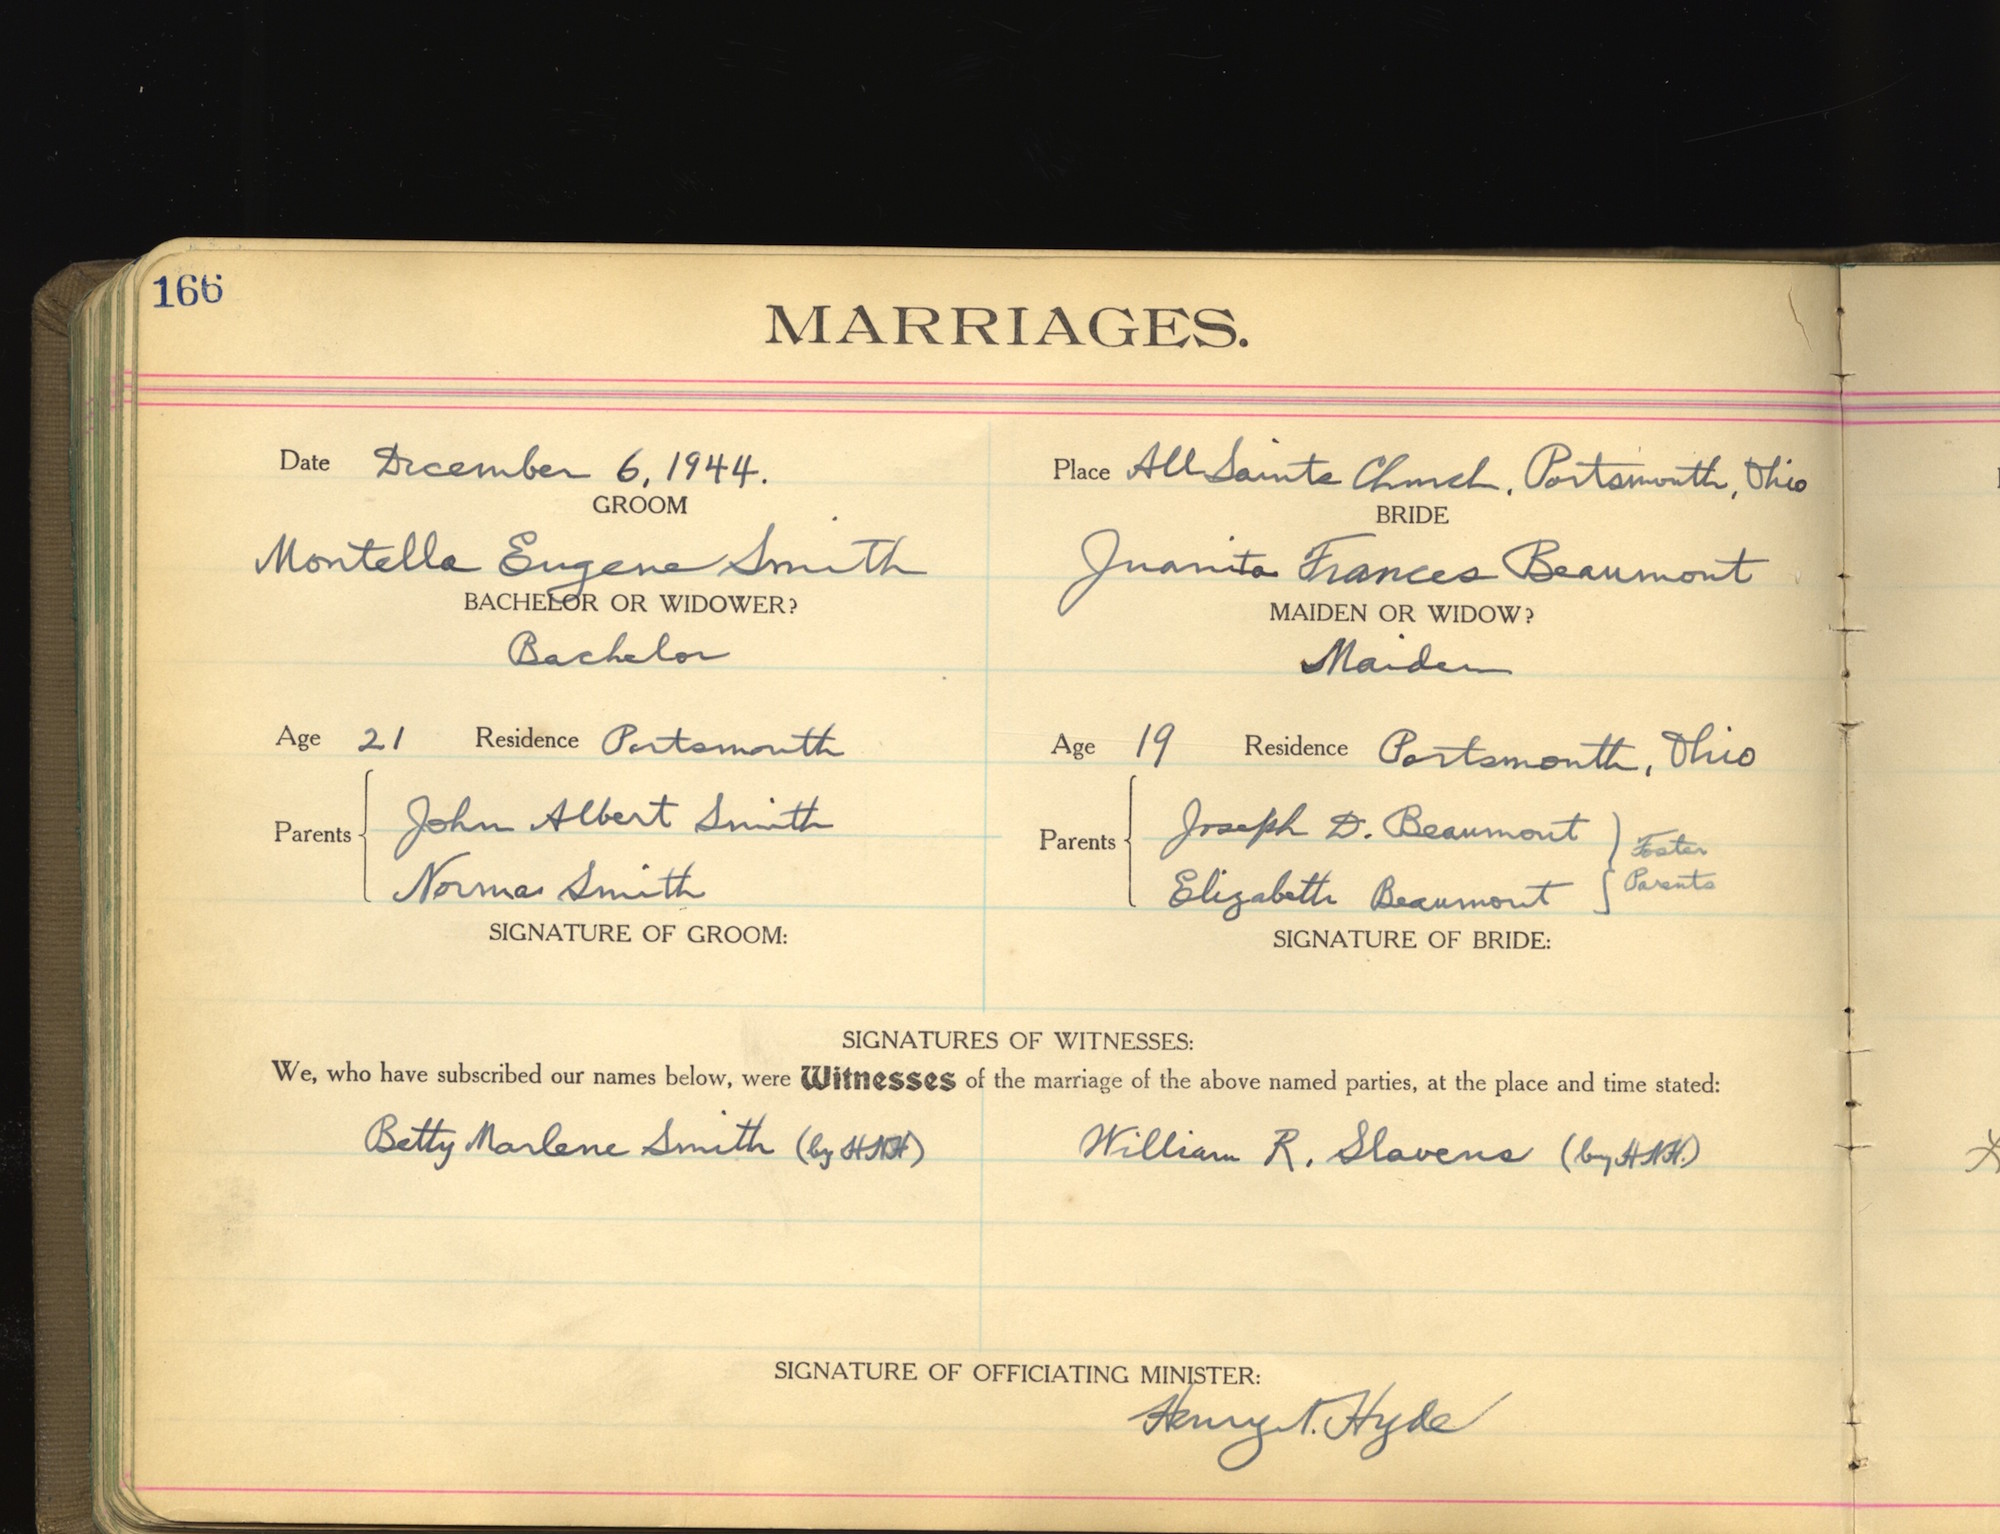 166
MARRIAGES.
Date December 6, 1944. Place All Saints Church, Portsmouth, Ohio
GROOM BRIDE
Montella Eugene Smith Juanita Frances Beaumont
BACHELOR OR WIDOWER? MAIDEN OR WIDOW?
Bachelor Maiden
Age 21 Residence Portsmouth Age 19 Residence Portsmouth, Ohio
Parents John Albert Smith Parents Joseph D. Beaumont Foster
Norma Smith Elizabeth Beaumont Parents
SIGNATURE OF GROOM: SIGNATURE OF BRIDE:
SIGNATURES OF WITNESSES:
We, who have subscribed our names below, were Witnesses of the marriage of the above named parties, at the place and time stated:
Betty Marlene Smith (by HNH) William R. Slavens (by HNH.)
SIGNATURE OF OFFICIATING MINISTER:
Henry N. Hyde